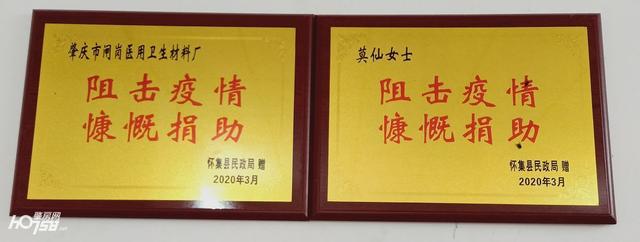 肇庆市闸岗医用卫生材料厂
阻击疫情
慷慨捐助
怀集县民政局 赠
2020年3月
莫仙女士
阻击疫情
慷慨捐助
怀集县民政局 赠
2020年3月
肇房网
HO758.net